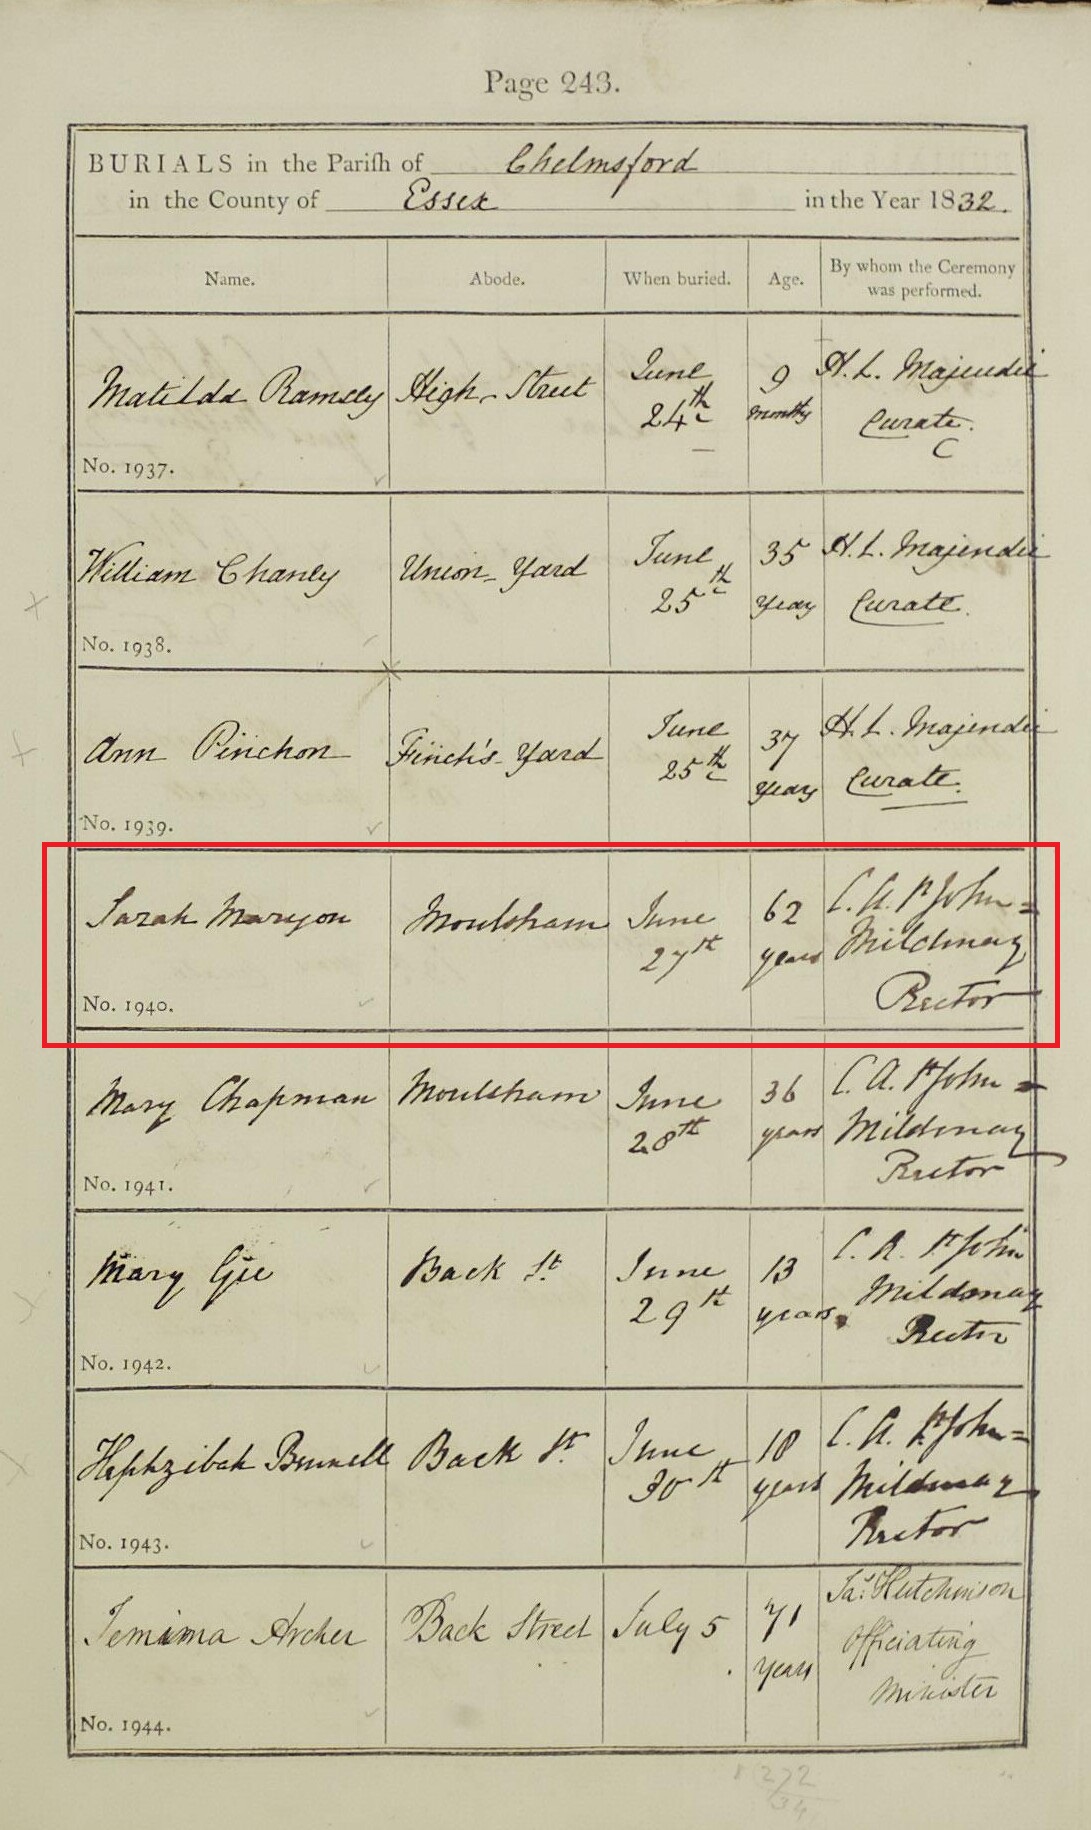 Page 243.
BURIALS in the Parish of Chelmsford
in the County of Essex in the Year 1832.
Name. Abode. When buried. Age. By whom the Ceremony
was performed.
Matilda Ramsey High Street June 9 H. L. Majendie
24th months Curate.
C
No. 1937.
William Chanley Union Yard June 35 H. L. Majendie
25th years Curate.
No. 1938.
Ann Pinchon Finch's Yard June 37 H. L. Majendie
25th years Curate.
No. 1939.
Sarah Maryon Moulsham June 62 C. A. St John =
27th years Mildmay
Rector
No. 1940.
Mary Chapman Moulsham June 36 C. A. St John =
28th years Mildmay
Rector
No. 1941.
Mary Gee Back St. June 13 C. A. St John
29th years. Mildmay
Rector
No. 1942.
Hephzibah Bunnell Back St. June 18 C. A. St John =
30th years Mildmay
Rector
No. 1943.
Jemima Archer Back Street July 5 71 Jas. Hutchinson
years Officiating
Minister
No. 1944.
272
34